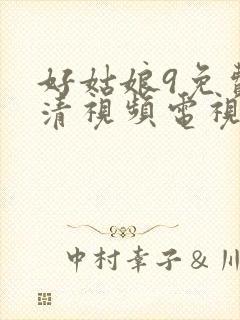 好姑娘9免費
清視頻電視
中村幸子&川